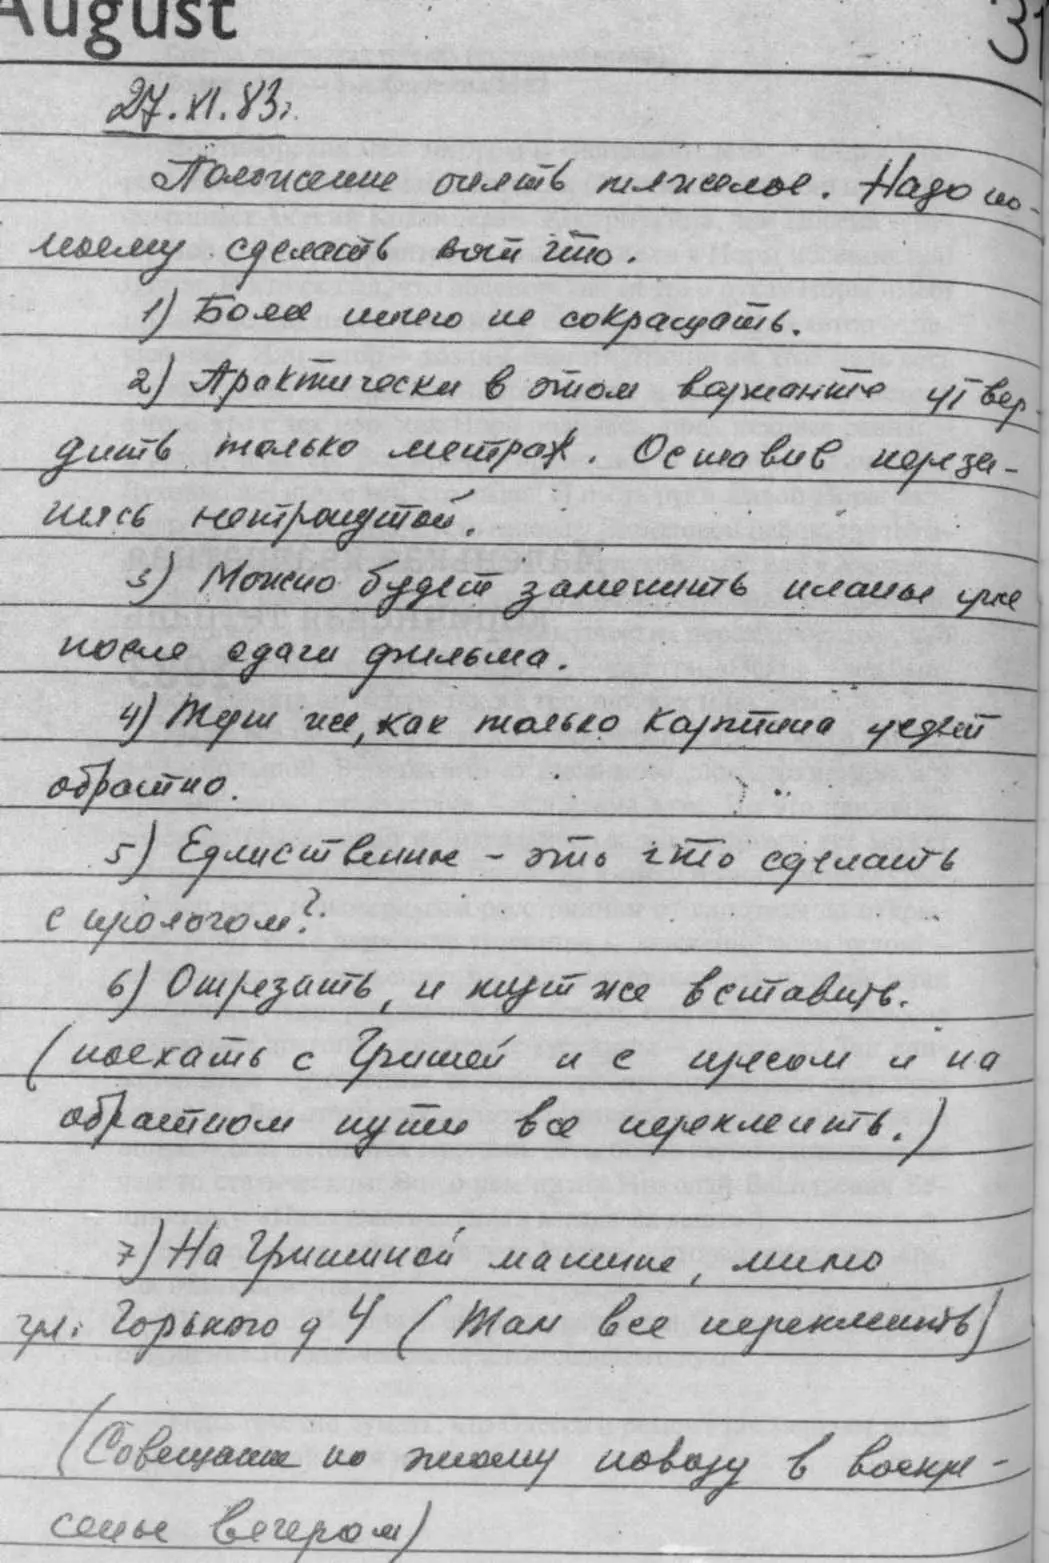 August 31
27.XI.83г.
Положение опять тяжелое. Надо по-
моему сделать вот что.
1) Более ничего не сокращать.
2) Практически в этом варианте утвер-
дить только метраж. Оставив перезо-
пись нетронутой.
3) Можно будет заменить планы уже
после сдачи фильма.
4) Тут же, как только картина уедет
обратно.
5) Единственное - это что сделать
с прологом?
6) Отрезать, и тут же вставить.
(поехать с Гришей и с прессом и на
обратном пути все переклеить.)
7) На Гришиной машине, мимо
ул. Горького д 4 (Там все переклеить)
(Совещание по этому поводу в воскре-
сенье вечером)